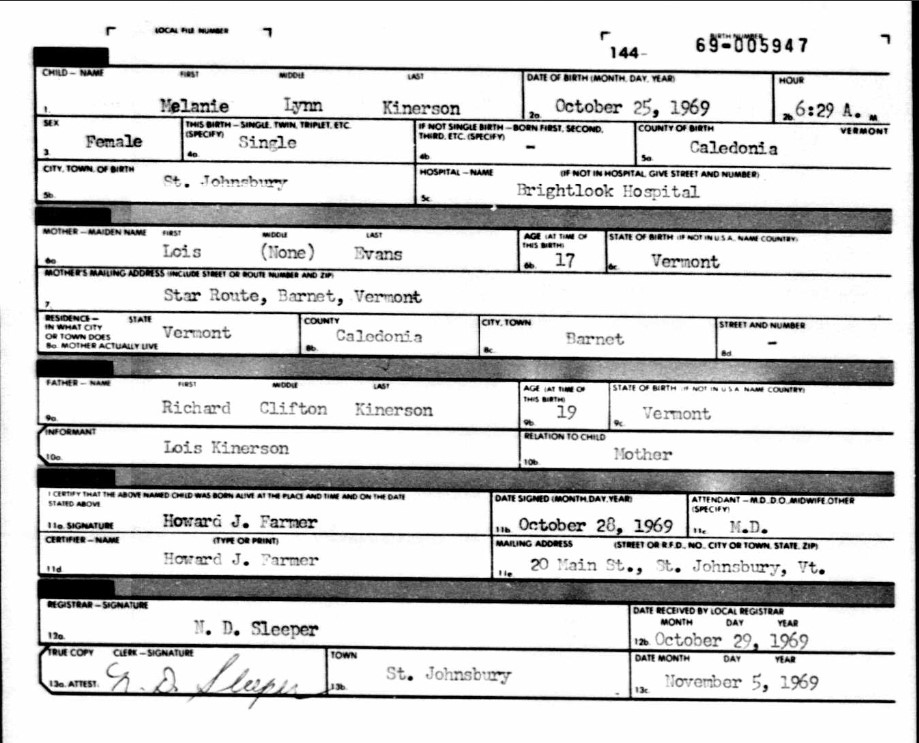 LOCAL FILE NUMBER
BIRTH NUMBER
144- 69-005947
CHILD – NAME FIRST MIDDLE LAST DATE OF BIRTH (MONTH, DAY, YEAR) HOUR
1. Melanie Lynn Kinerson 2a. October 25, 1969 2b. 6:29 A. M
SEX THIS BIRTH – SINGLE, TWIN, TRIPLET, ETC. (SPECIFY) IF NOT SINGLE BIRTH – BORN FIRST, SECOND, THIRD, ETC. (SPECIFY) COUNTY OF BIRTH VERMONT
3. Female 4a. Single 4b – 5a. Caledonia
CITY, TOWN, OF BIRTH HOSPITAL – NAME (IF NOT IN HOSPITAL, GIVE STREET AND NUMBER)
5b. St. Johnsbury 5c. Brightlook Hospital
MOTHER – MAIDEN NAME FIRST MIDDLE LAST AGE (AT TIME OF THIS BIRTH) STATE OF BIRTH (IF NOT IN U.S.A. NAME COUNTRY)
6a. Lois (None) Evans 6b. 17 6c. Vermont
MOTHER'S MAILING ADDRESS (INCLUDE STREET OR ROUTE NUMBER AND ZIP)
7. Star Route, Barnet, Vermont
RESIDENCE – IN WHAT CITY OR TOWN DOES MOTHER ACTUALLY LIVE STATE COUNTY CITY, TOWN STREET AND NUMBER
8a. Vermont 8b. Caledonia 8c. Barnet 8d –
FATHER – NAME FIRST MIDDLE LAST AGE (AT TIME OF THIS BIRTH) STATE OF BIRTH (IF NOT IN U.S.A. NAME COUNTRY)
9a. Richard Clifton Kinerson 9b. 19 9c. Vermont
INFORMANT RELATION TO CHILD
10a. Lois Kinerson 10b. Mother
I CERTIFY THAT THE ABOVE NAMED CHILD WAS BORN ALIVE AT THE PLACE AND TIME AND ON THE DATE STATED ABOVE DATE SIGNED (MONTH, DAY, YEAR) ATTENDANT – M.D., D.O., MIDWIFE, OTHER (SPECIFY)
11a. SIGNATURE Howard J. Farmer 11b. October 28, 1969 11c. M.D.
CERTIFIER – NAME (TYPE OR PRINT) MAILING ADDRESS (STREET OR R.F.D., NO., CITY OR TOWN, STATE, ZIP)
11d. Howard J. Farmer 11e. 20 Main St., St. Johnsbury, Vt.
REGISTRAR – SIGNATURE DATE RECEIVED BY LOCAL REGISTRAR
MONTH DAY YEAR
12a. N. D. Sleeper 12b. October 29, 1969
TRUE COPY CLERK – SIGNATURE TOWN DATE MONTH DAY YEAR
13a. ATTEST. N. D. Sleeper 13b. St. Johnsbury 13c. November 5, 1969